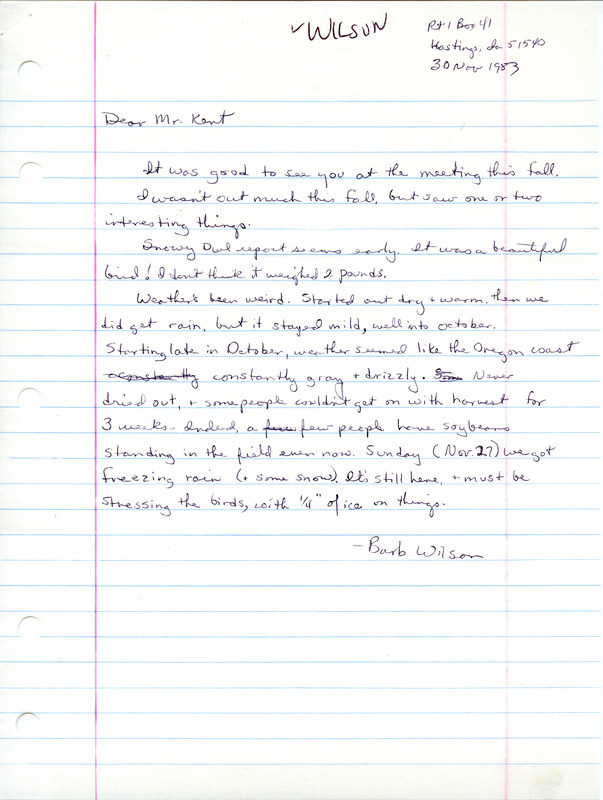 ✓WILSON
Rt 1 Box 41
Hastings, Ia 51540
30 Nov 1983
Dear Mr. Kent
It was good to see you at the meeting this fall.
I wasn't out much this fall, but saw one or two
interesting things.
Snowy Owl report seems early. It was a beautiful
bird! I don't think it weighed 2 pounds.
Weather's been weird. Started out dry + warm, then we
did get rain, but it stayed mild, well into october.
Starting late in October, weather seemed like the Oregon coast
constantly gray + drizzly. Never
dried out, + some people couldn't get on with harvest for
3 weeks. Indeed, a few people have soybeans
standing in the field even now. Sunday (Nov. 27) we got
freezing rain (+ some snow). It's still here, + must be
stressing the birds, with 1/4" of ice on things.
- Barb Wilson